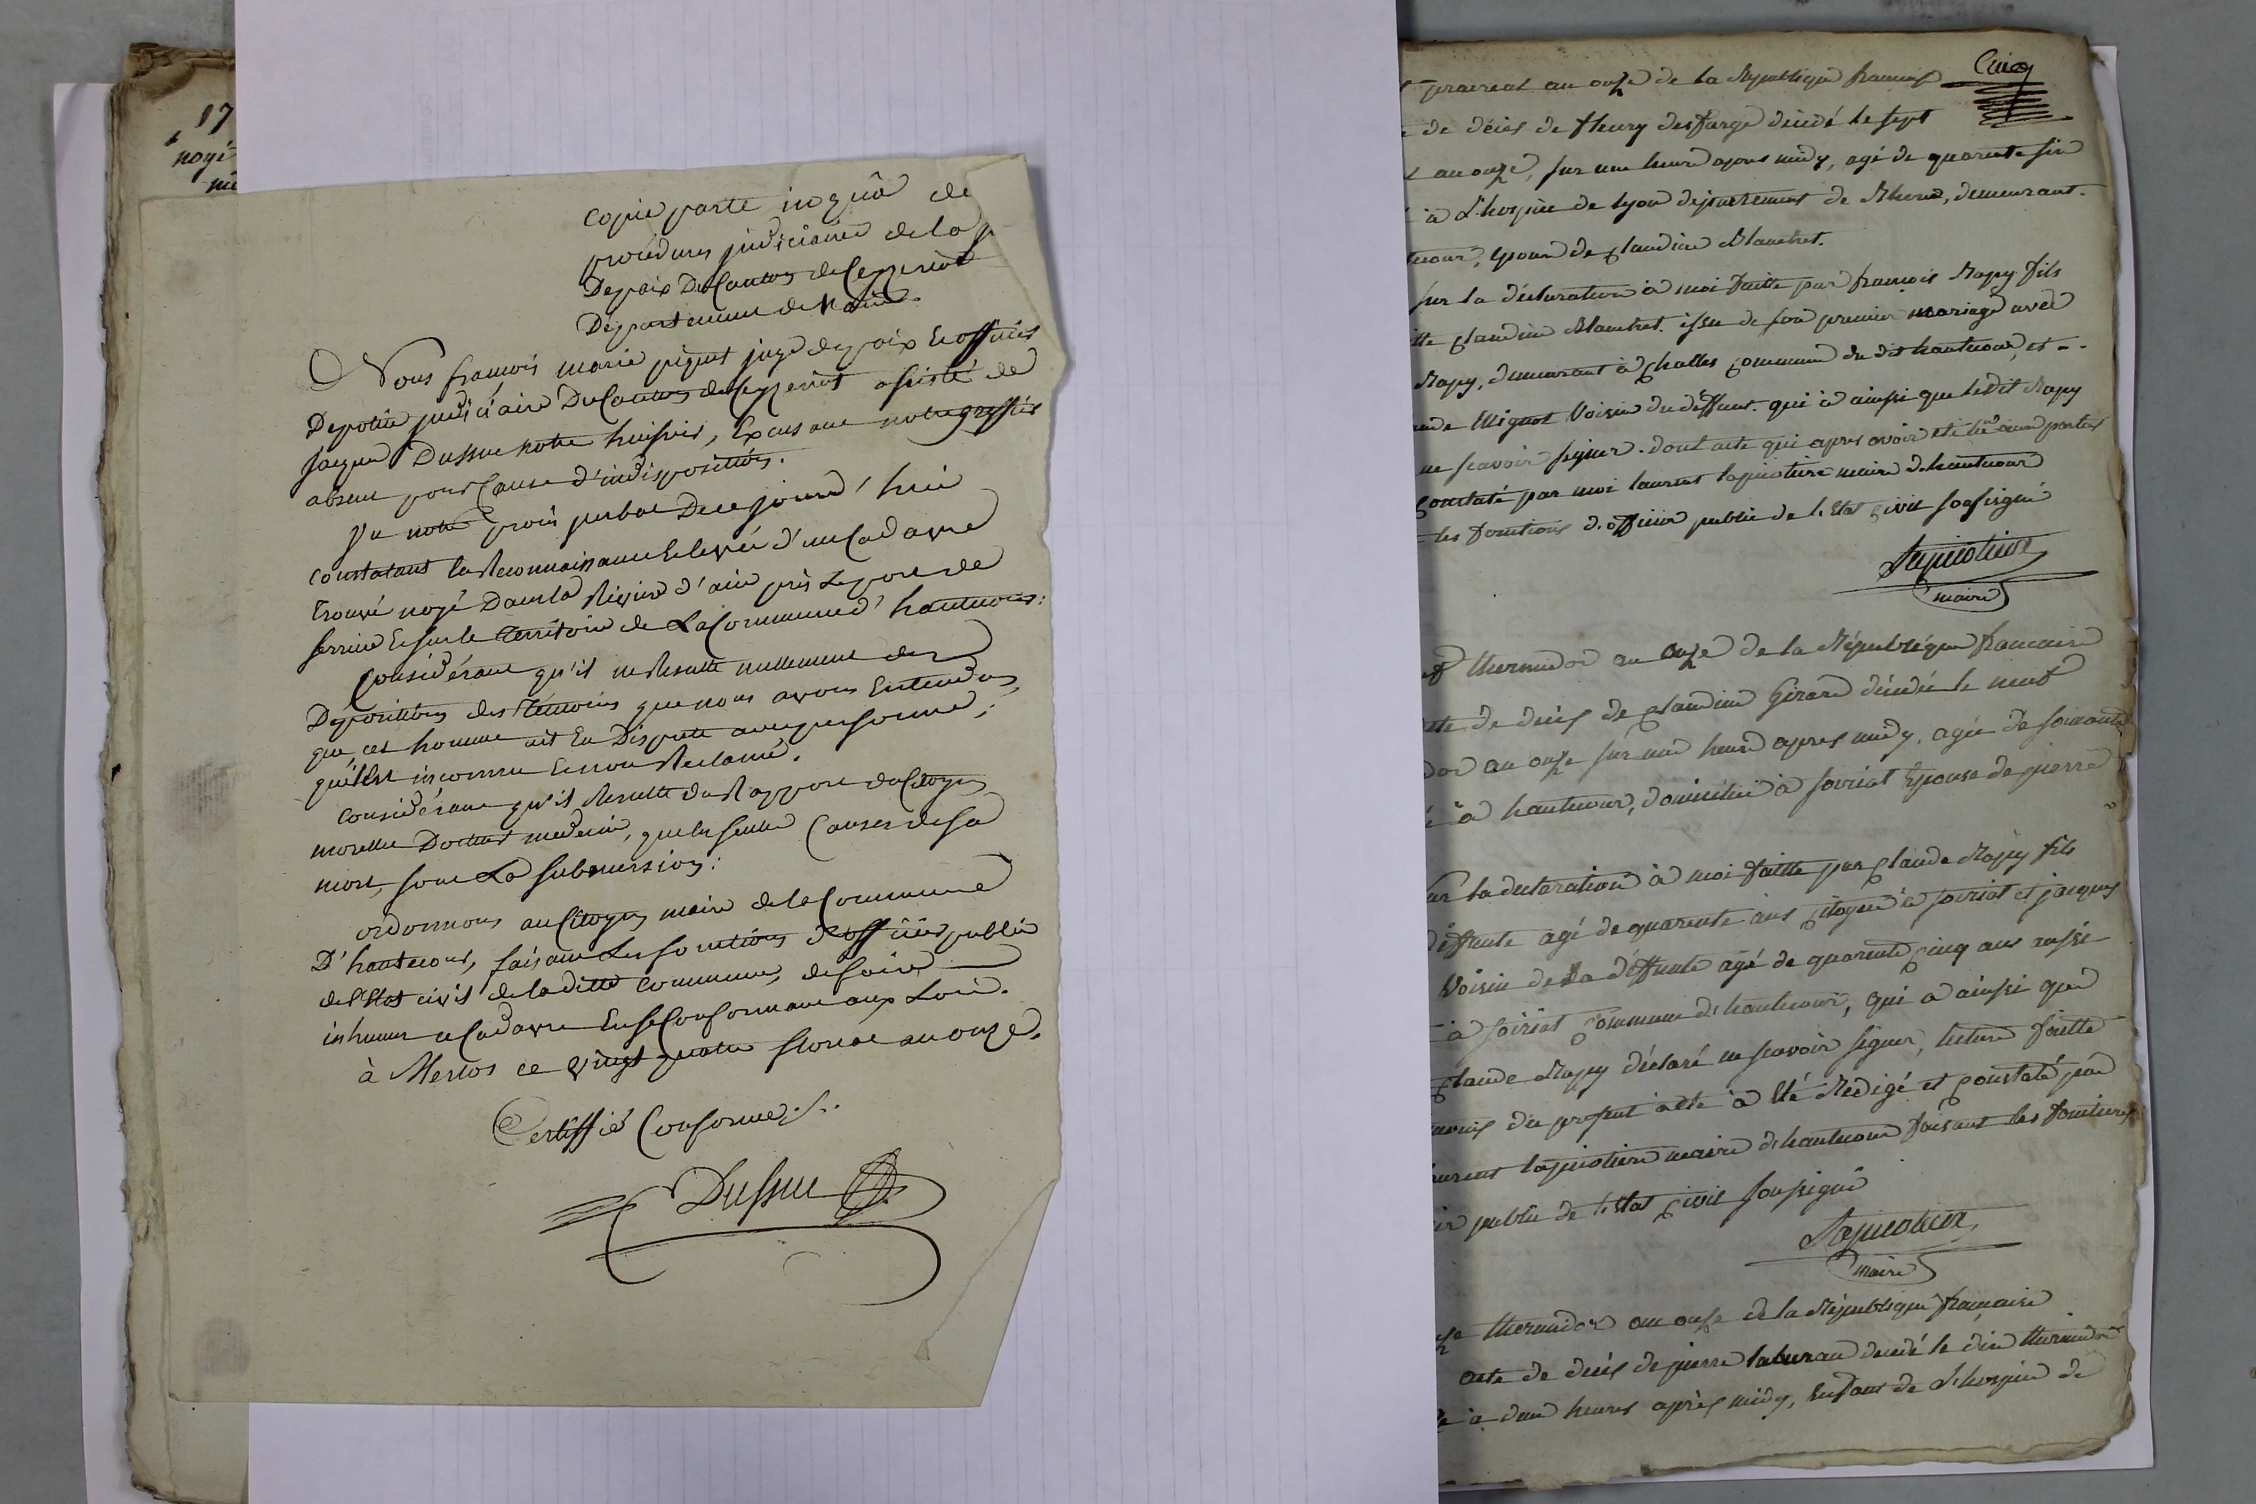 17
noyé
copie parte in quâ de
procédures judiciaire de la j
De paix Du Canton de Ceyzeriat
Département de l'ain.
Nous francois marie piquet juge de paix Et officier
De police judiciaire Du Canton de Ceyzeriat assisté de
jacques Dussuc notre huissier, Excusant notre greffier
absent pour Cause d'indisposition.
Vu notre procès verbal De ce jourd'hui
constatant la Reconnaissance Et levée d'un Cadavre
trouvé noyé Dans la Rivière d'ain près Le port de
serrière Et sur le Territoire de La Commune d'hautecour:
Considérant qu'il ne Resulte nullement des
Depositions des Temoins que nous avons Entendus,
que cet homme ait Eu Dispute avec personne;
qu'il Est inconnu Et non Reclamé.
considérant qu'il Resulte du Rapport du Citoyen
morellet Docteur medecin, que les seules Causes de sa
mort, sont La submersion:
ordonnons au Citoyen maire de la Commune
D'hautecour, faisant Les fonctions D'officier public
de l'Etat civil de la ditte Commune, de faire
inhumer ce Cadavre En se Conformant aux Loix.
à Merlos ce vingt quatre floreal an onze.
Certiffié Conforme
Dussuc
Cinq
prairial an onze de la République francais
de décès de fleury desfarge décédé le sept
an onze, sur une heure apres midy, agé de quarente six
à L'hospice de lyon département de Rhone, demeurant
époux de Claudine Blanchet.
sur la déclaration à moi faitte par francois Rapy fils
Claudine Blanchet. issu de son premier mariage avec
Rapy, demeurant à Challes Commune du dit hautecour, et
Mignot Voisin du deffunt. qui à ainsi que ledit Rapy
ne scavoir signer. dont acte qui apres avoir eté lû aux parties
Constaté par moi laurent lapicotiere maire d'hautecour
les fonctions d'officier public de l'Etat Civil soussigné
Lapicotiere
maire
thermidor an onze de la République francaise
de décès de Claudine Girard décédée le neuf
an onze sur une heure apres midy, agée de soixante
à hautecour, domiciliée à soiriat Epouse de pierre
sur la déclaration à moi faitte par Claude Rapy fils
déffunte agé de quarente ans Citoyen à soiriat et jacques
Voisin de la déffunte agé de quarente Cinq ans aussi
à soiriat Commune d'hautecour, qui a ainsi que
Claude Rapy déclaré ne scavoir signer, lecture faitte
du présent acte à Eté Redigé et Constaté par
laurent lapicotiere maire d'hautecour faisant les fonctions
public de l'Etat Civil soussigné
Lapicotiere
maire
thermidor an onze de la République francaise
acte de décès de pierre décédé le dix thermidor
à deux heures après midy, Enfant de L'hospice de